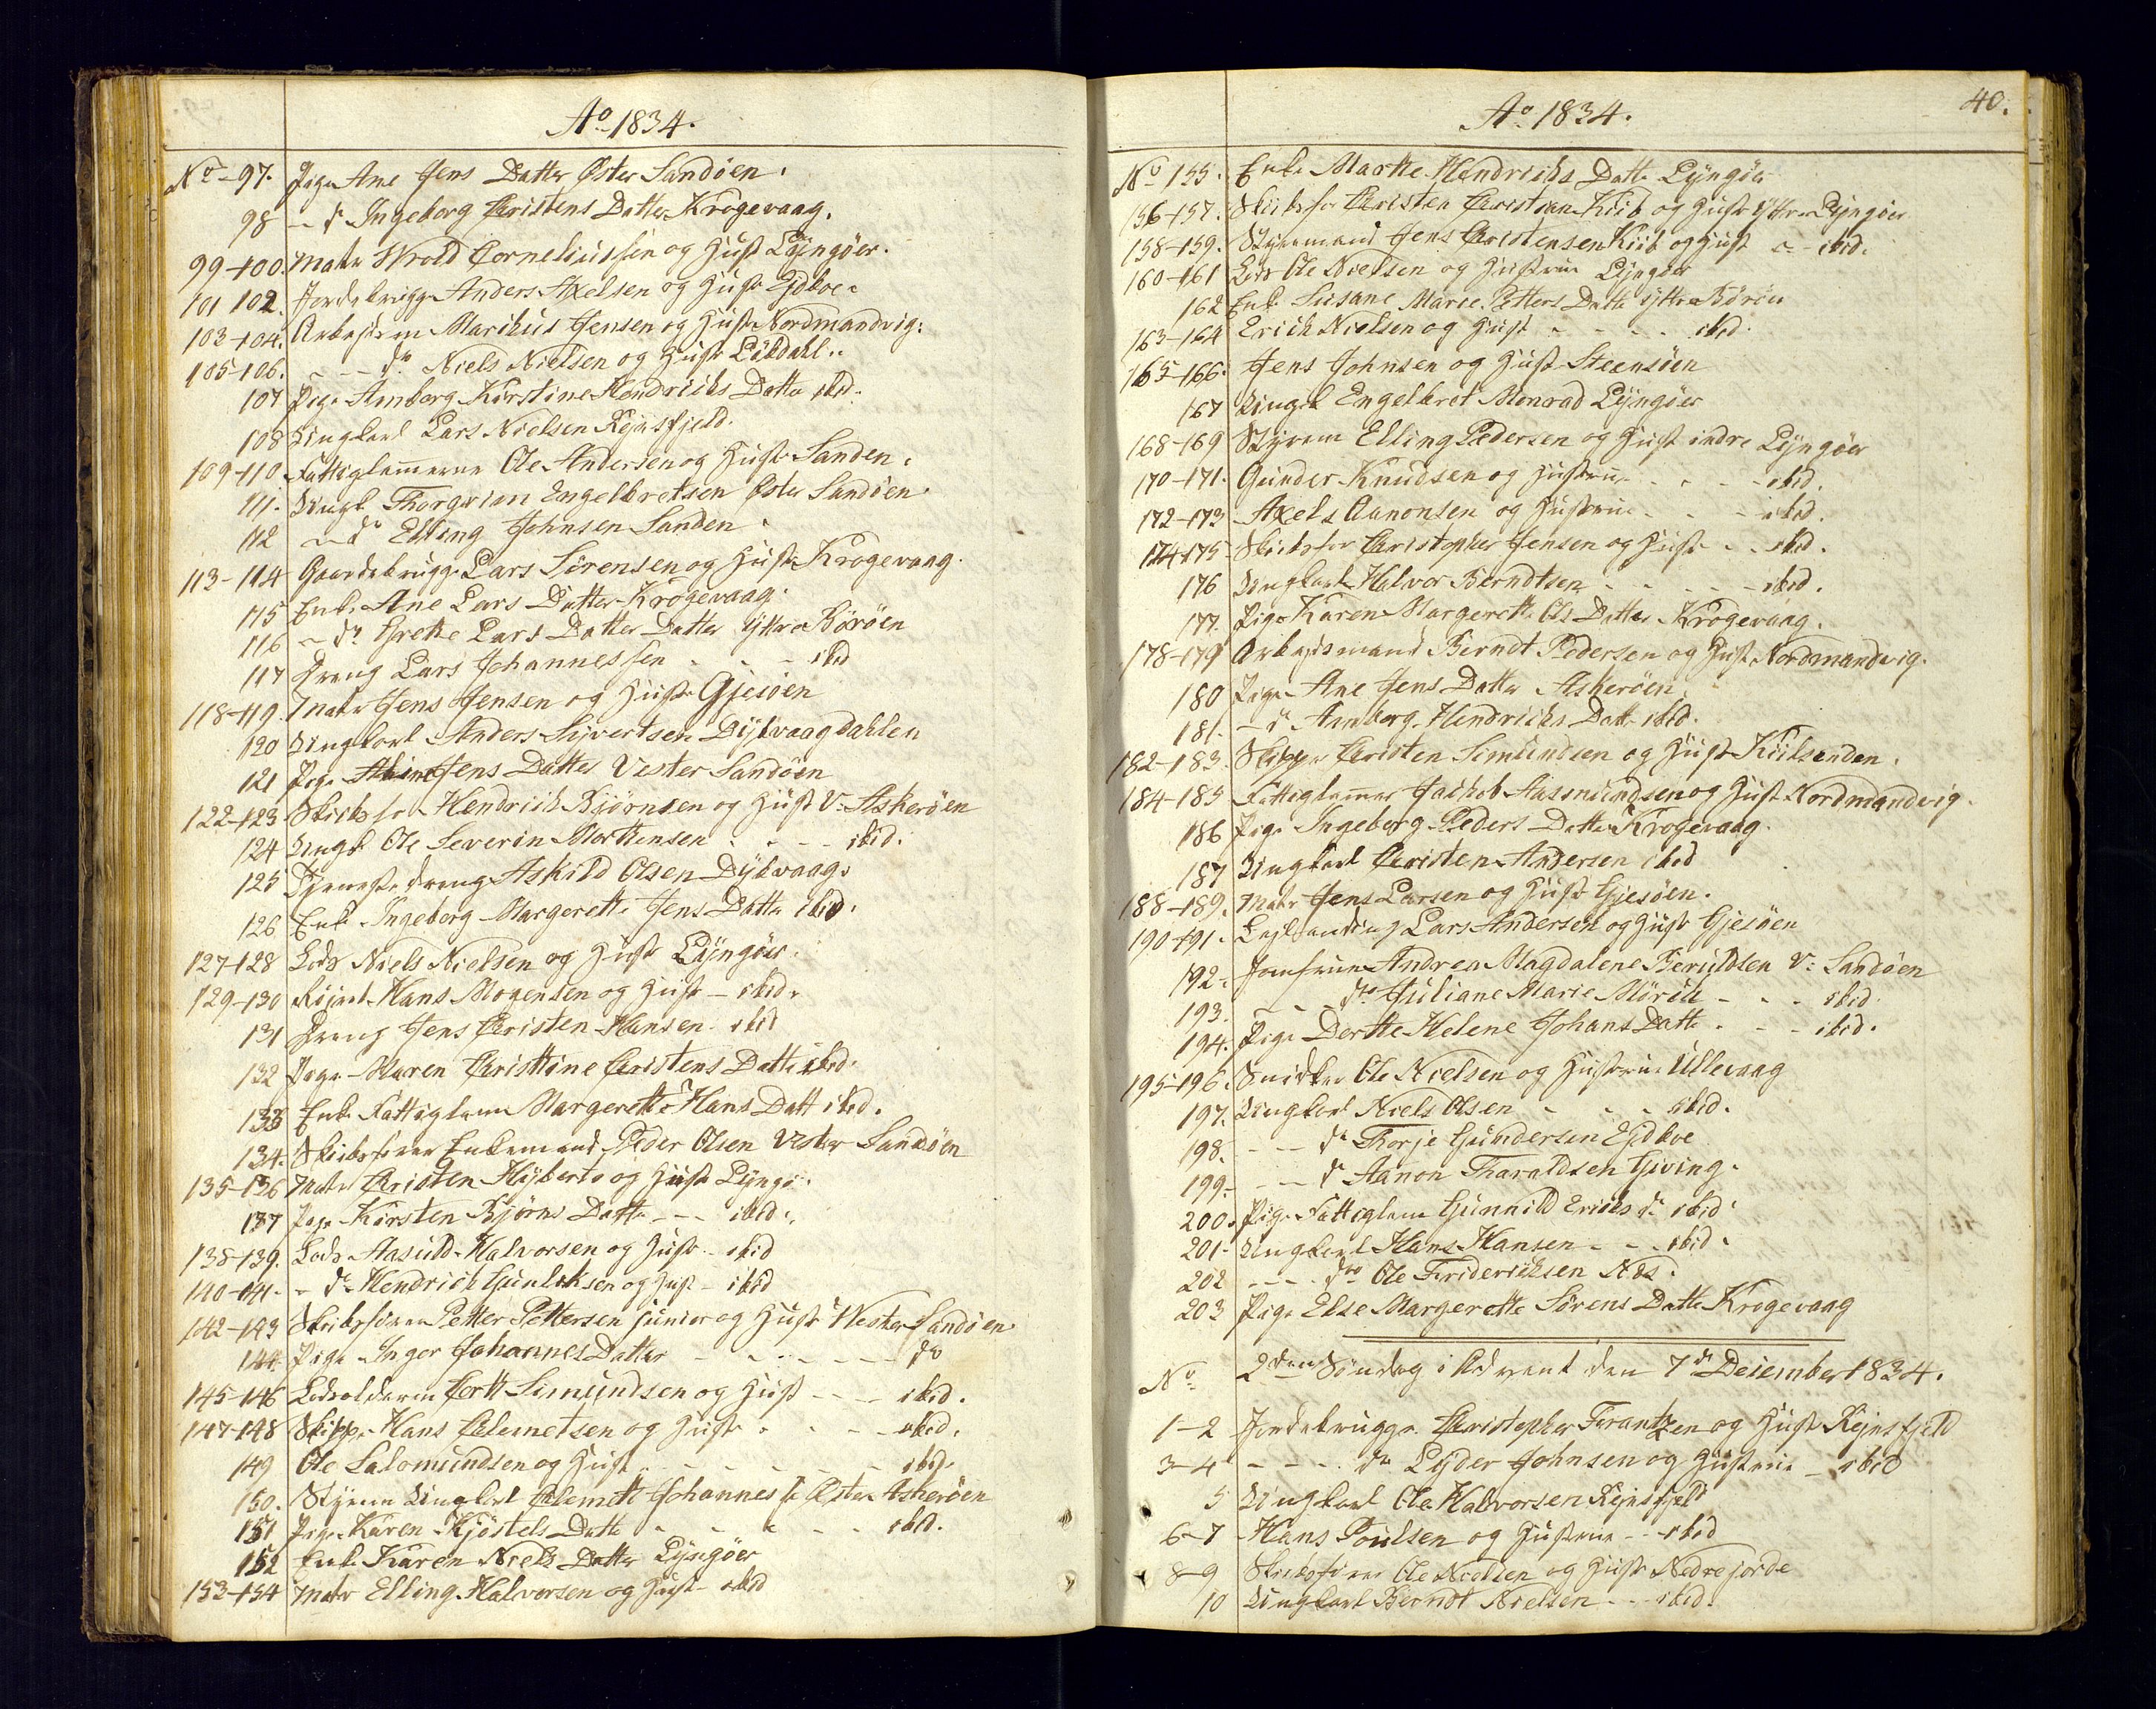 Ao 1834.
No 97. Pige Ane Jens Datter Øster Sandöen.
98 - do Ingeborg Christens Datter Krogevaag.
99-100. Matr Wrold Corneliussen og Hust Lÿngöer.
101 102. Jordebrugge Anders Axelsen og Hustr Ejdboe
103-104. Arbejdsm Marikus Jensen og Hustr Nordmandvig.
105-106. - - do Niels Nielsen og Hustr Lökdahl..
107 Pige Amborg Kirstine Hendrichs Datter ibid.
108 Ungkarl Lars Nielsen Rejersfjeld.
109-110. Fattiglemmerne Ole Andersen og Hustr Sanden.
111. Ungk Thorgrim Engelbretsen Øster Sandöen.
112 - do Elling Johnsen Sanden.
113-114 Gaardebrugge Lars Sörensen og Hustr Krogevaag.
115 Enke Ane Lars Datter Krogevaag.
116 - do Grethe Lars Datter Datter ÿttre Böröen
117 Dreng Lars Johannessen - - - ibid
118-119. Matr Jens Jensen og Hustr Gjesöen
120 Ungkarl Anders Sivertsen Dÿbvaagdahlen
121 Pige Jens Datter Vester Sandöen
122-123 Skibsför Hendrich Bjørnsen og Hust V: Askeröen
124 Ungk Ole Severin Mortensen - - - ibid.
125 Tjeneste dreng Askild Olsen Dÿbvaag.
126 Enke Ingeborg Margrethe Jens Datter ibid.
127-128 Lods Niels Nielsen og Hustr Lÿngöer.
129-130 Hans Mogensen og Hustr - ibid.
131 Dreng Jens Christen Hansen ibid
132 Pige Maren Christine Christens Datter ibid.
133 Enke Fattiglem Margerethe Hans Datt ibid.
134. Skibsförer Enkemand Peder Olsen Vester Sandöen
135-136 Matr Christen Hÿberts og Hustr Lÿngö.
137 Pige Kirsten Bjørns Datter - - ibid.
138-139. Lods Aasuld Halvorsen og Hustr - ibid
140-141. - do Hendrich Gunleksen og Hust - ibid
142-143 Skibsförer Petter Pettersen junior og Hustr Wester Sandöen
144. Pige Inger Johannes Datter - - - - - do
145-146 Cort Simundsen og Hust - - - ibid.
147-148 Skipper Hans Clemetsen og Hustr - - - ibid.
149 Ole Salomundsen og Hust - - - - ibid.
150. Styrm Ungkarl Clemett Johannes Øster Askeröen
151 Pige Karen Kjöstels Datter - - - - ibid.
152 Enke Karen Niels Datter Lÿngöer
153-154 Matr Elling Halvorsen og Hust - ibid
40.
Ao 1834.
No 155. Enke Marthe Hendrichs Datter Lÿngöer
156-157. Skibsför Christen Christian Kiib og Hustr ÿttre Lÿngöer
158-159. Styremand Jens Christensen Kiib og Hust - ibid.
160-161 Lods Ole Nielsen og Hustrue Lÿngöer
162 Enke Susane Marie Petters Datter ÿttre Böröen
163-164 Erich Nielsen og Hust - - - - ibid.
165-166. Jens Johnsen og Hust Steensöen
167 Ungk Engelbret Monrad Lÿngöer
168-169 Styrem Elling Pedersen og Hust indre Lÿngöer
170-171. Gunder Knudsen og Hustrue - - - ibid.
172-173 Axel Aanonsen og Hustrue - - - ibid.
174-175 Skibsför Christopher Jensen og Hust - - ibid.
176 Ungkarl Halvor Berndtsen - - - - ibid.
177. Pige Karen Margerethe Ols Datter Krogevaag.
178-179 Arbejdsmand Berndt Pedersen og Hust Nordmandvig.
180 Pige Ane Jens Datter Askeröen.
181. - do Amborg Hendrichs Datt ibid.
182-183. Skipper Christen Simundsen og Hust Kiilsenden.
184-185 Fattiglemmer Jachob Aasmundsen og Hust Nordmandvig.
186 Pige Ingeborg Peders Datter Krogevaag.
187 Ungkarl Christen Andersen ibid
188-189. Matr Jens Larsen og Hust Gjesöen.
190-191. Lars Andersen og Hust Gjesöen
192. Jomfrue Andrea Magdalene Beruldsen V: Sandöen
193. - - do Juliane Marie Mörch - - - ibid.
194. Pige Dorthe Helene Johans Datte - - - ibid.
195-196. Snidker Ole Nielsen og Hustrue Ullevaag
197. Ungkarl Niels Olsen - - - ibid.
198. - - do Thorje Gundersen Ejdboe
199. - - do Aanon Tharaldsen Giving.
200. Pige Fattiglem Gunnild Erichs do ibid
201. Ungkarl Hans Hansen - - ibid.
202 - - - do Ole Friderichsen Næs.
203 Pige Else Margerethe Sörens Datter Krogevaag
No 2den Söndag i Advent den 7de December 1834.
1-2 Jordebrugge Christopher Frantzen og Hust Rejersfjeld
3-4 - - - do Lÿder Johnsen og Hustrue - ibid
5 Ungkarl Ole Halvorsen Rejersfjeld
6-7 Hans Poulsen og Hustrue - - ibid
8-9 Skibsförer Ole Nielsen og Hustr Nedrejorde
10 Ungkarl Berndt Nielsen - - ibid.